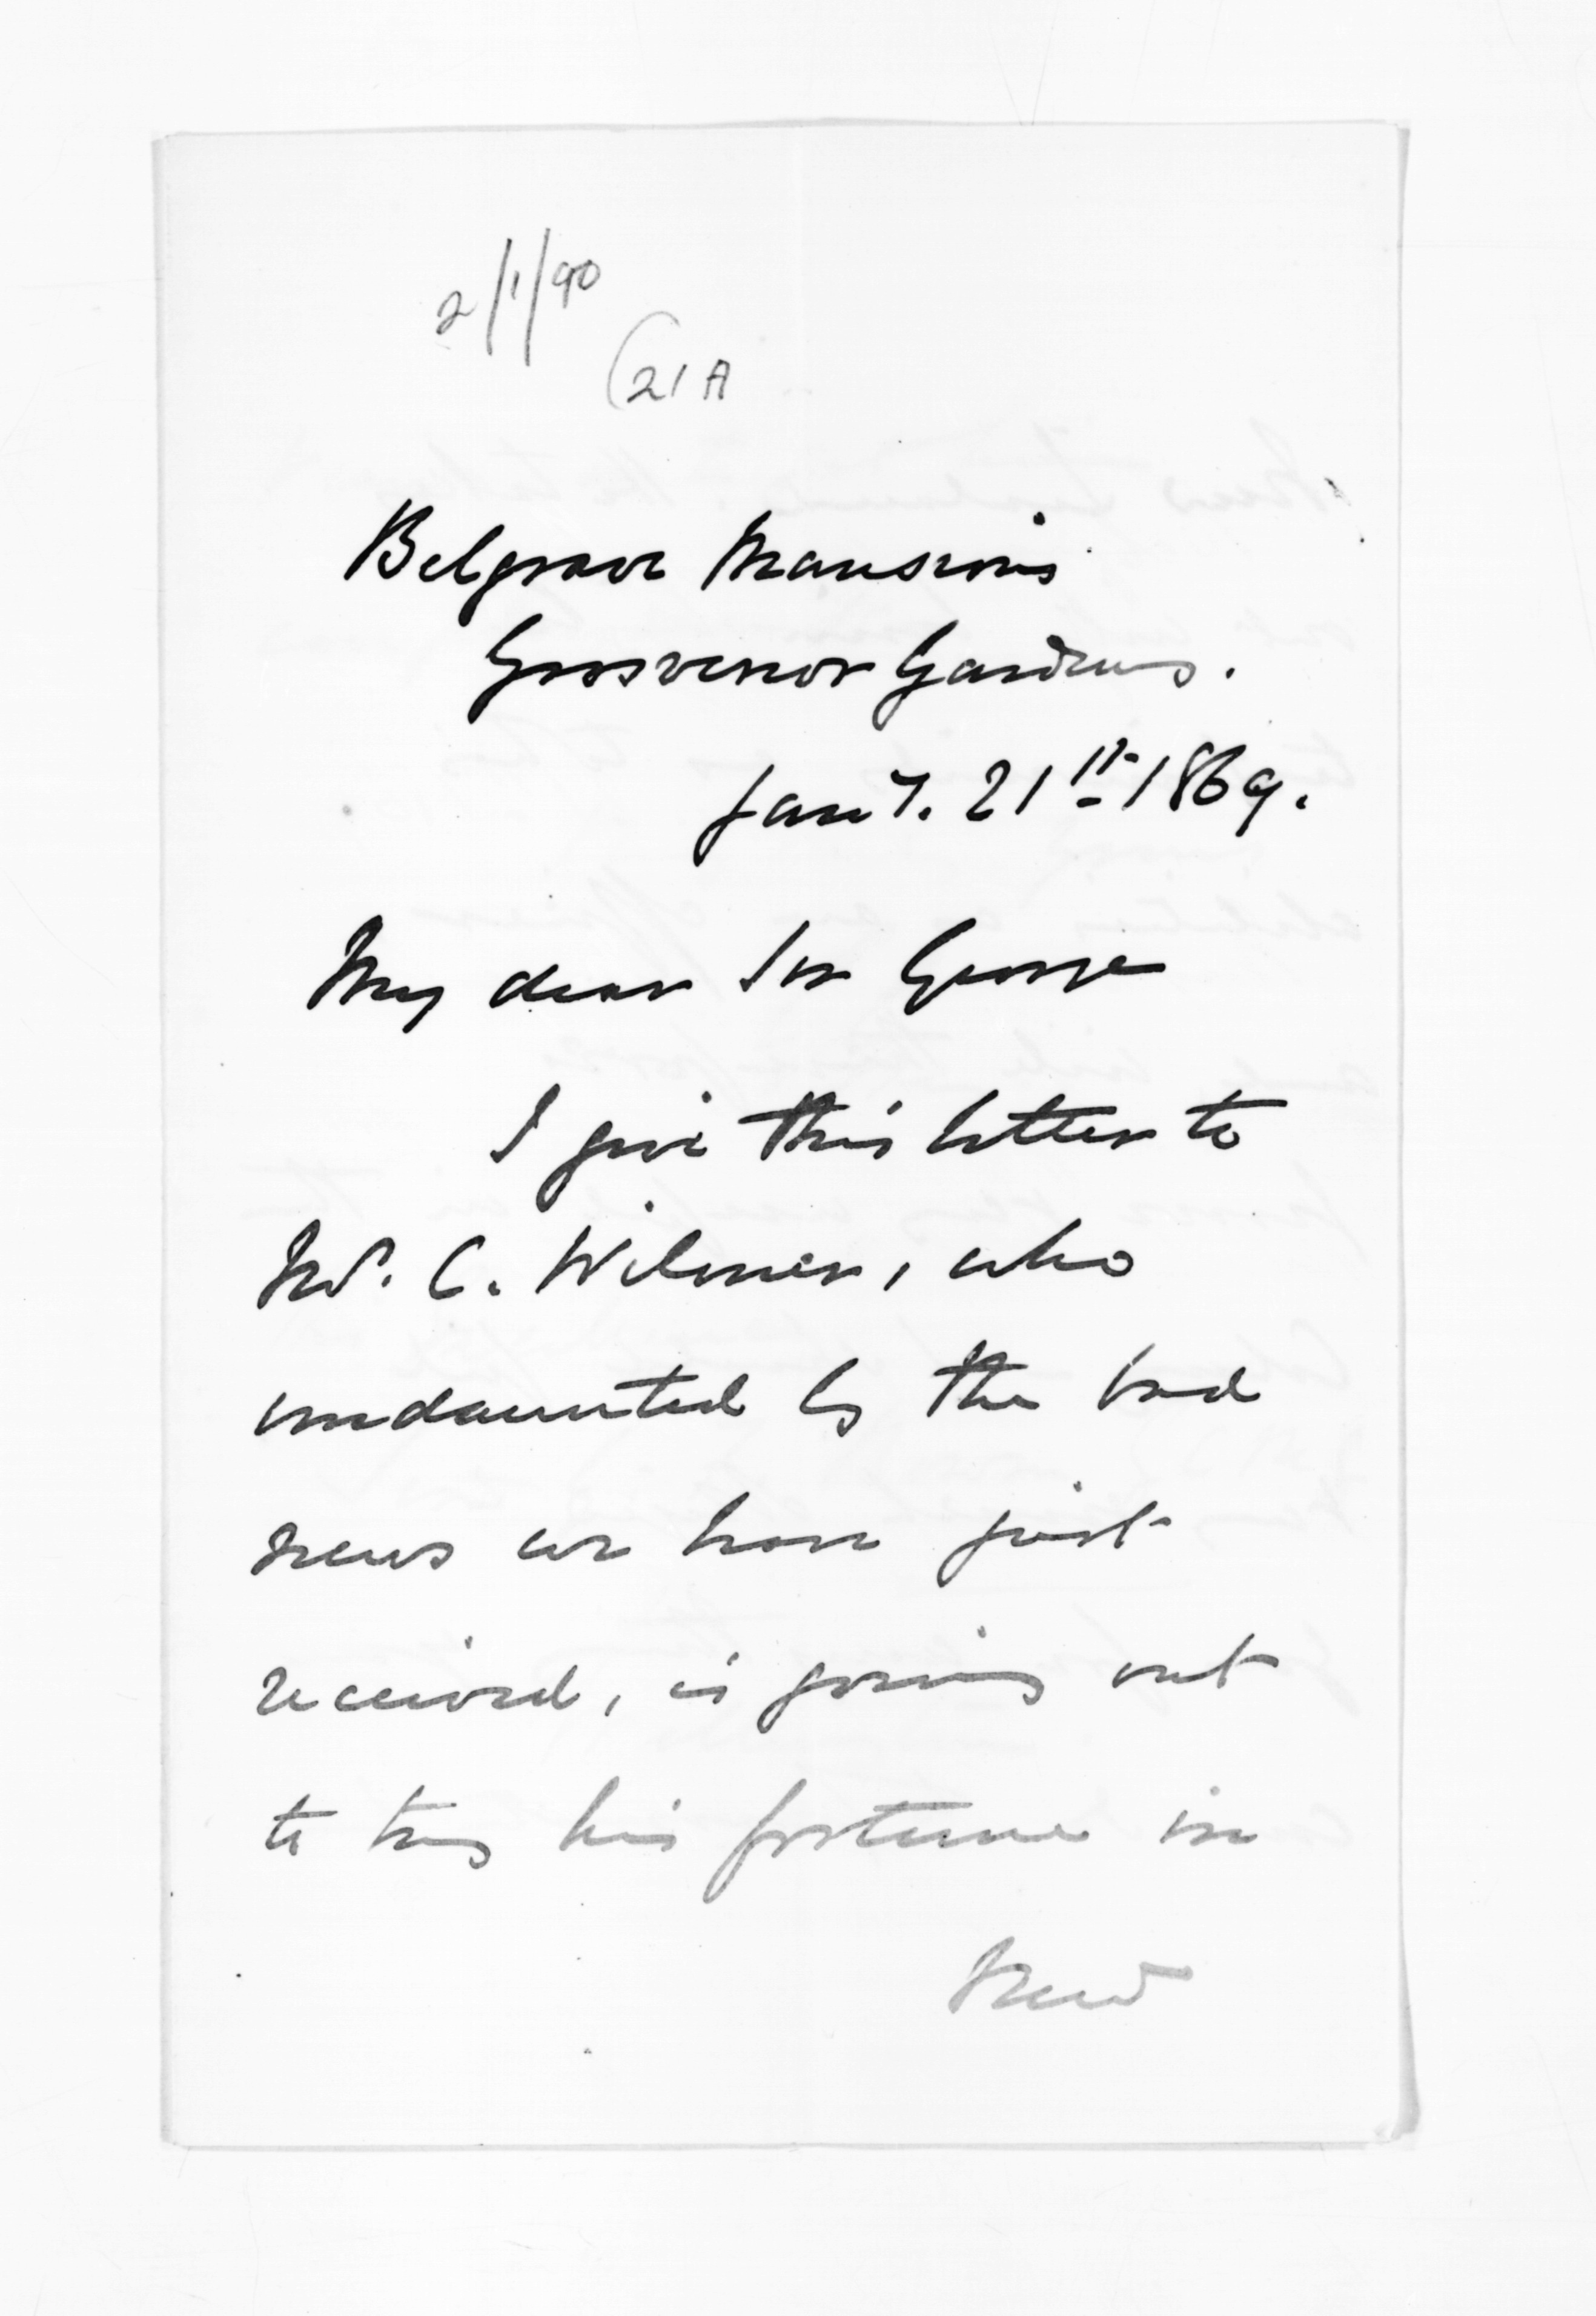 2/1/90
(21A
Belgrave Mansions
Grosvenor Gardens.
Jany. 21st 1869.
My dear Sir George
I give this letter to
Mr. C. Wilmer, who
undaunted by the bad
news we have just
received, is going out
to try his fortune in
New